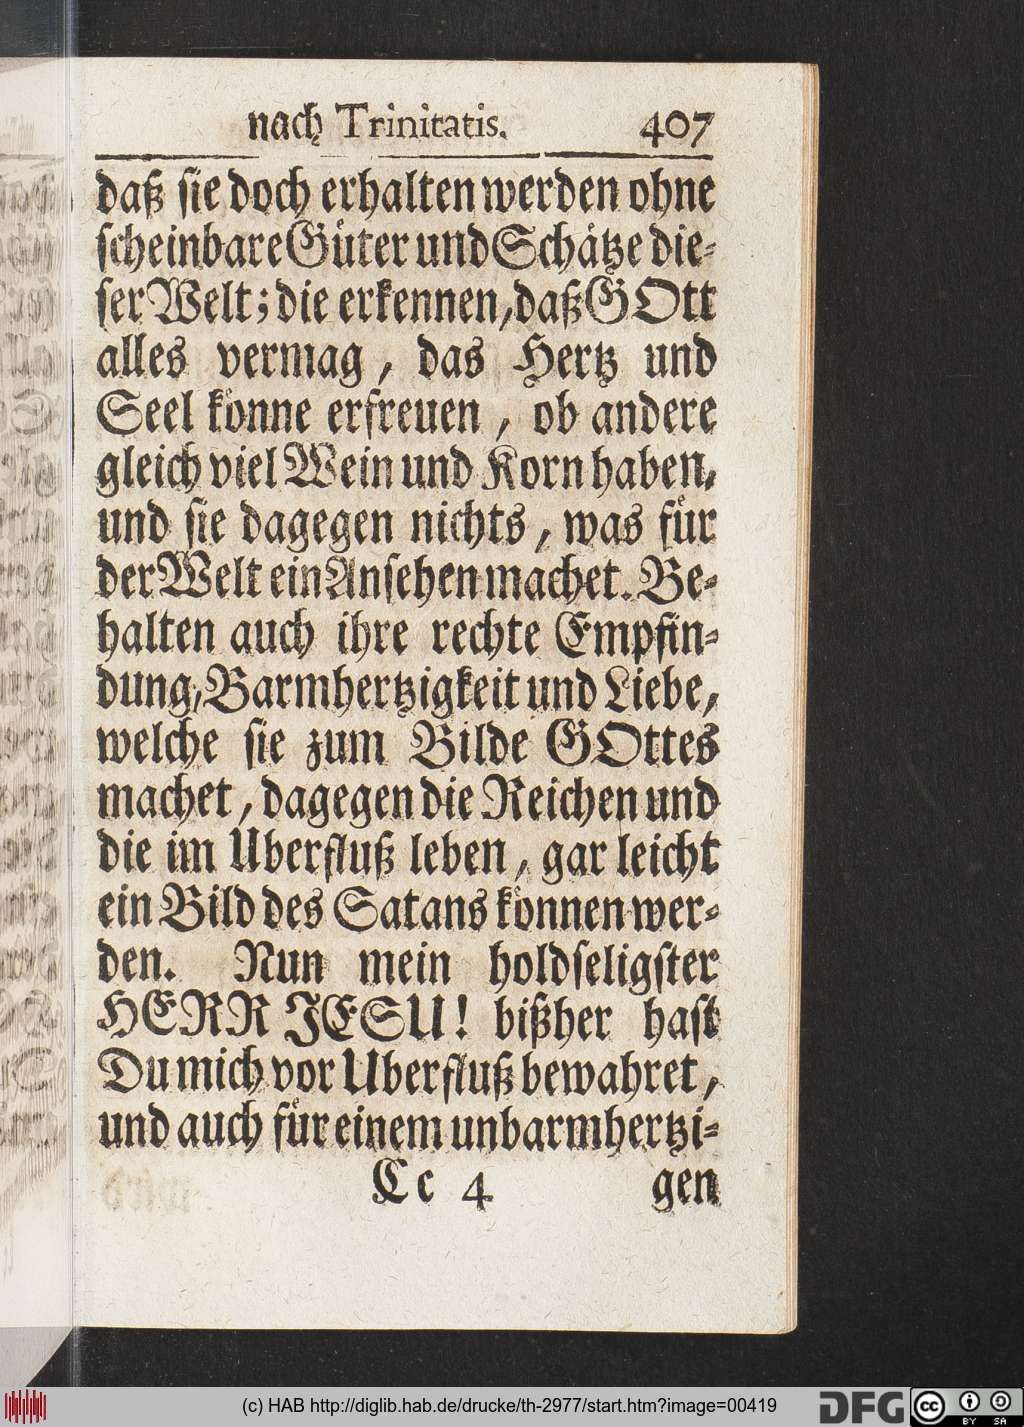 nach Trinitatis. 407
daß sie doch erhalten werden ohne
scheinbare Güter und Schätze die-
ser Welt; die erkennen, daß GOtt
alles vermag, das Hertz und
Seel könne erfreuen, ob andere
gleich viel Wein und Korn haben,
und sie dagegen nichts, was für
der Welt ein Ansehen machet. Be-
halten auch ihre rechte Empfin-
dung, Barmhertzigkeit und Liebe,
welche sie zum Bilde GOttes
machet, dagegen die Reichen und
die im Uberfluß leben, gar leicht
ein Bild des Satans können wer-
den. Nun mein holdseligster
HERR JESU! bißher hast
Du mich vor Uberfluß bewahret,
und auch für einem unbarmhertzi-
Cc 4 gen
(c) HAB http://diglib.hab.de/drucke/th-2977/start.htm?image=00419
DFG
cc BY SA